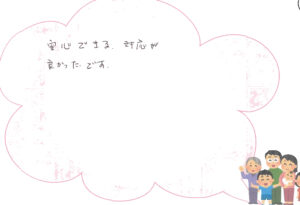 安心できる、対応が
良かったです。